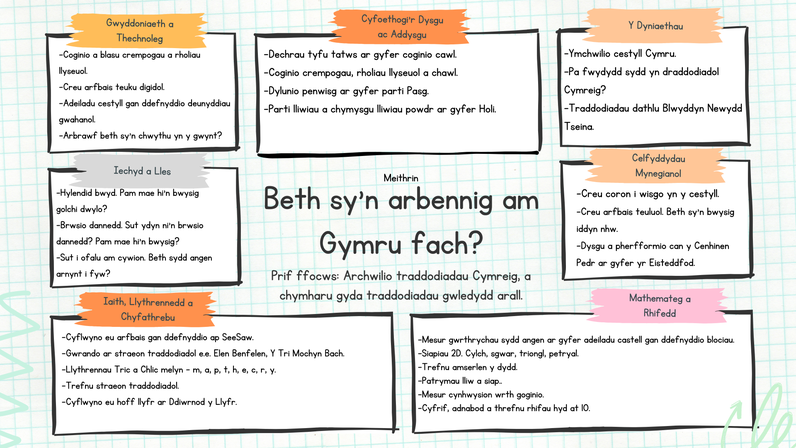 Gwyddoniaeth a
Thechnoleg
-Coginio a blasu crempogau a rholiau
llyseuol.
-Creu arfbais teuku digidol.
-Adeiladu cestyll gan ddefnyddio deunyddiau
gwahanol.
-Arbrawf beth sy'n chwythu yn y gwynt?
Cyfoethogi'r Dysgu
ac Addysgu
-Dechrau tyfu tatws ar gyfer coginio cawl.
-Coginio crempogau, rholiau llyseuol a chawl.
-Dylunio penwisg ar gyfer parti Pasg.
-Parti lliwiau a chymysgu lliwiau powdr ar gyfer Holi.
Y Dyniaethau
-Ymchwilio cestyll Cymru.
-Pa fwydydd sydd yn draddodiadol
Cymreig?
-Traddodiadau dathlu Blwyddyn Newydd
Tseina.
Iechyd a Lles
-Hylendid bwyd. Pam mae hi'n bwysig
golchi dwylo?
-Brwsio dannedd. Sut ydyn ni'n brwsio
dannedd? Pam mae hi'n bwysig?
-Sut i ofalu am cywion. Beth sydd angen
arnynt i fyw?
Meithrin
Beth sy'n arbennig am
Gymru fach?
Prif ffocws: Archwilio traddodiadau Cymreig, a
chymharu gyda traddodiadau gwledydd arall.
Celfyddydau
Mynegianol
-Creu coron i wisgo yn y cestyll.
-Creu arfbais teuluol. Beth sy'n bwysig
iddyn nhw.
-Dysgu a pherfformio can y Cenhinen
Pedr ar gyfer yr Eisteddfod.
Iaith, Llythrennedd a
Chyfathrebu
-Cyflwyno eu arfbais gan ddefnyddio ap SeeSaw.
-Gwrando ar straeon traddodiadol e.e. Elen Benfelen, Y Tri Mochyn Bach.
-Llythrennau Tric a Chlic melyn - m, a, p, t, h, e, c, r, y.
-Trefnu straeon traddodiadol.
-Cyflwyno eu hoff llyfr ar Ddiwrnod y Llyfr.
Mathemateg a
Rhifedd
-Mesur gwrthrychau sydd angen ar gyfer adeiladu castell gan ddefnyddio blociau.
-Siapiau 2D. Cylch, sgwar, triongl, petryal.
-Trefnu amserlen y dydd.
-Patrymau lliw a siap..
-Mesur cynhwysion wrth goginio.
-Cyfrif, adnabod a threfnu rhifau hyd at 10.